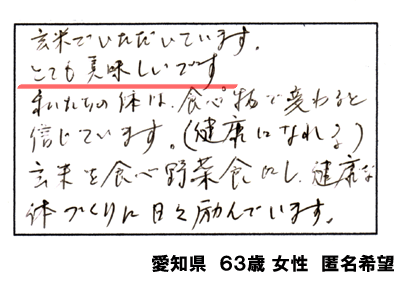 玄米でいただいています。
とても美味しいです
私たちの体は、食べ物で変わると
信じています。(健康になれる)
玄米を食べ野菜食にし、健康な
体づくりに日々励んでいます。
愛知県 63歳 女性 匿名希望